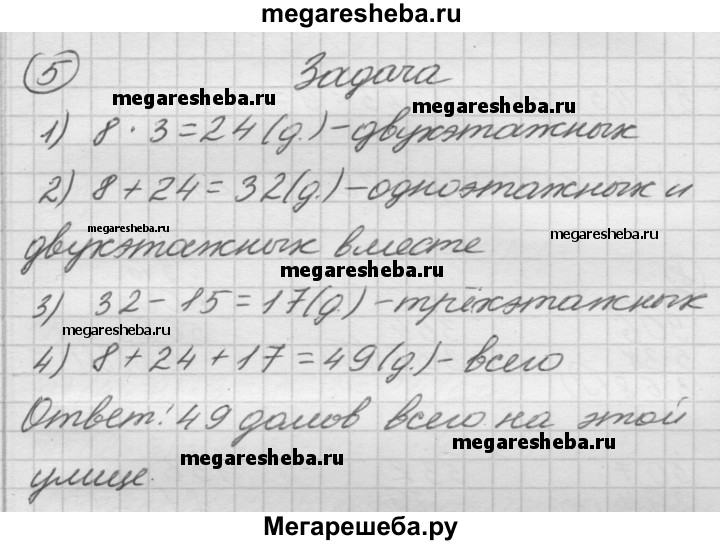 megaresheba.ru
5 Задача
megaresheba.ru megaresheba.ru
1) 8 · 3 = 24 (д.) – двухэтажных
2) 8 + 24 = 32 (д.) – одноэтажных и
megaresheba.ru megaresheba.ru
двухэтажных вместе
megaresheba.ru
3) 32 – 15 = 17 (д.) – трёхэтажных
megaresheba.ru
4) 8 + 24 + 17 = 49 (д.) – всего
Ответ: 49 домов всего на этой
megaresheba.ru megaresheba.ru
улице.
Мегарешеба.ру